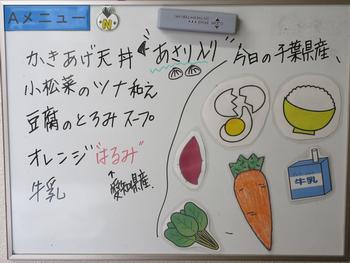 Aメニュー
N
かきあげ天丼 あさり入り
小松菜のツナ和え
豆腐のとろみスープ
オレンジ"はるみ"
愛知県産.
牛乳
今日の千葉県産、
牛乳